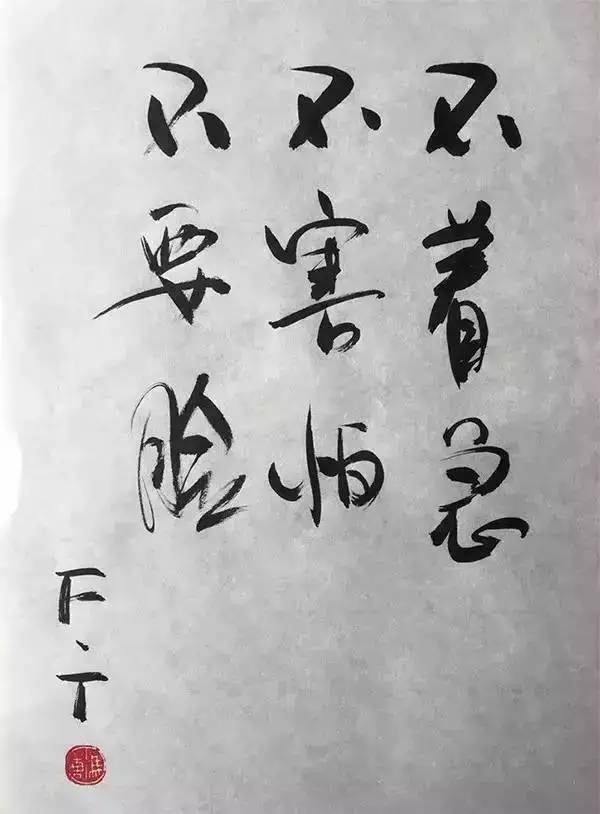 不着急
不害怕
不要脸
F.T
冯唐